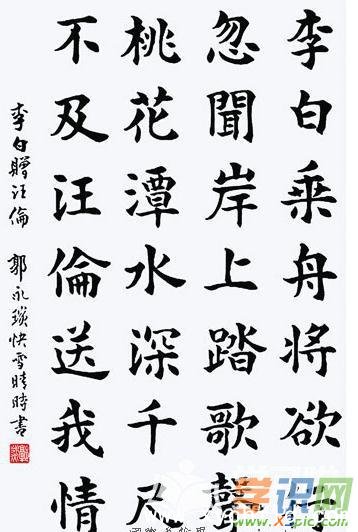 李白乘舟將欲行
忽聞岸上踏歌聲
桃花潭水深千尺
不及汪倫送我情
李白贈汪倫 郭永琰快雪晴時書
学识网